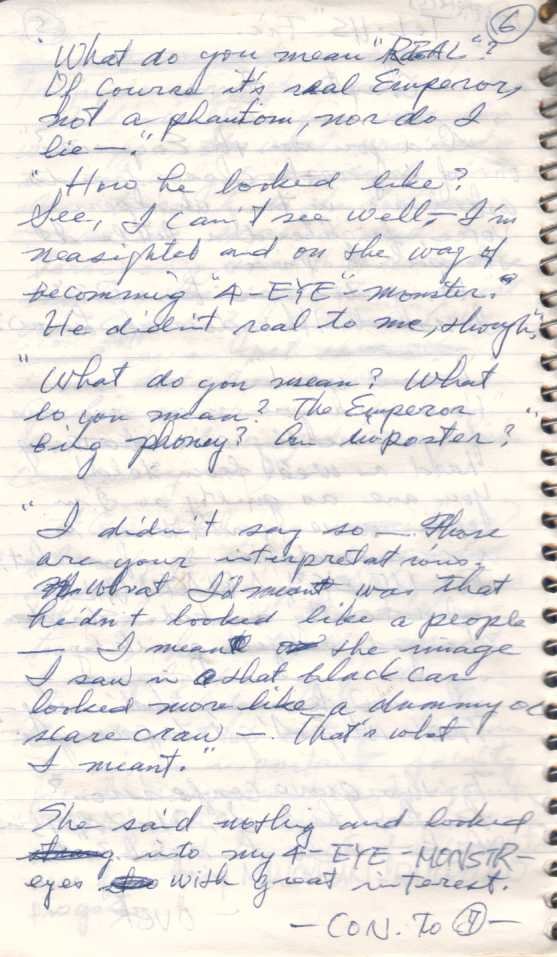 6
"What do you mean "REAL"?
Of course it's real Emperor,
not a phantom, nor do I
lie—."
"How he looked like?
See, I can't see well, I'm
neasighted and on the way of
becomming "4-EYE"-monster."
He didin't real to me, though."
"What do you mean? What
do you mean? The Emperor
bing phoney? An imposter?"
"I didn't say so — Those
are your interpretations.
What I'd meant was that
he'dn't looked like a people
— I meant the image
I saw in that black car
looked more like a dummy or
scare craw —. That's what
I meant."
She said nothing and looked
into my 4-EYE-MONSTR-
eyes with great interest.
— CON. TO 7 —